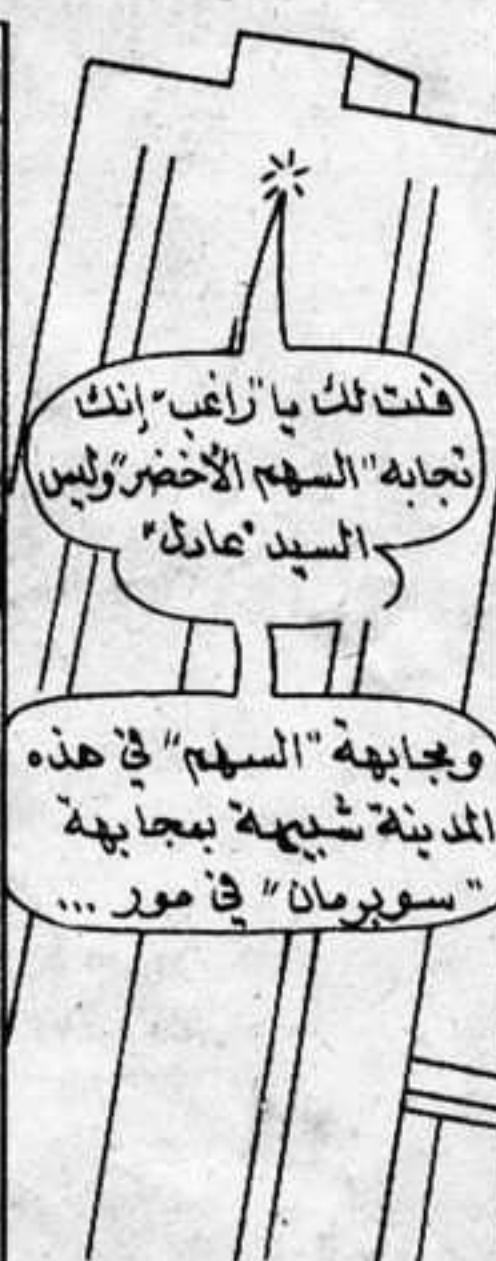 قلت لك يا "راغب" إنك
تجابه "السهم الأخضر" وليس
السيد "عادل"
ومجابهة "السهم" في هذه
المدينة شبيهة بمجابهة
"سوبرمان" في مور ...